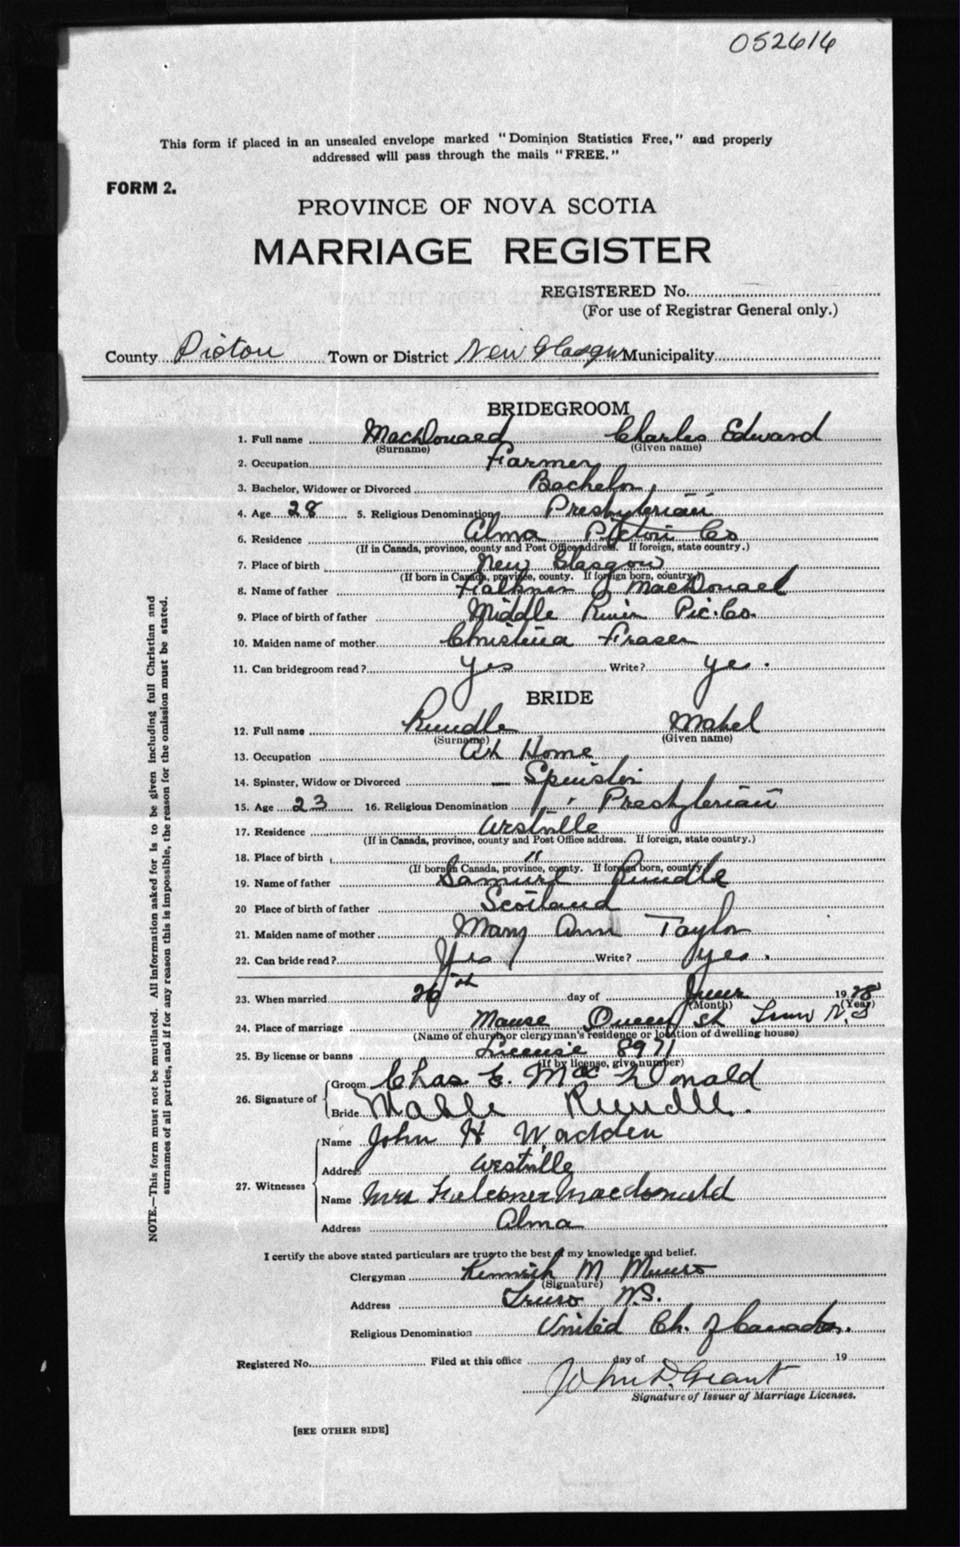 052616
This form if placed in an unsealed envelope marked "Dominion Statistics Free," and properly
addressed will pass through the mails "FREE."
FORM 2.
PROVINCE OF NOVA SCOTIA
MARRIAGE REGISTER
REGISTERED No.
(For use of Registrar General only.)
County Pictou Town or District New Glasgow Municipality
BRIDEGROOM
1. Full name MacDonald Charles Edward
(Surname) (Given name)
2. Occupation Farmer
3. Bachelor, Widower or Divorced Bachelor
4. Age 28 5. Religious Denomination Presbyterian
6. Residence Alma Pictou Co
(If in Canada, province, county and Post Office address. If foreign, state country.)
7. Place of birth New Glasgow
(If born in Canada, province, county. If foreign born, country)
8. Name of father Falkner J MacDonald
9. Place of birth of father Middle River Pic. Co.
10. Maiden name of mother Christena Fraser
11. Can bridegroom read? Yes Write? Yes.
BRIDE
12. Full name Rundle Mabel
(Surname) (Given name)
13. Occupation At Home
14. Spinster, Widow or Divorced Spinster
15. Age 23 16. Religious Denomination Presbyterian
17. Residence Westville
(If in Canada, province, county and Post Office address. If foreign, state country.)
18. Place of birth "
(If born in Canada, province, county. If foreign born, country)
19. Name of father Samuel Rundle
20 Place of birth of father Scotland
21. Maiden name of mother Mary Ann Taylor
22. Can bride read? Yes Write? Yes.
23. When married 26th day of June 1928
(Month) (Year)
24. Place of marriage Manse Queen St Truro N.S
(Name of church or clergyman's residence or location of dwelling house)
25. By license or banns License 8971
(If by license, give number)
26. Signature of
Groom Chas E. MacDonald
Bride Mable Rundle.
27. Witnesses
Name John H Wadden
Address Westville
Name Mrs Falconer Macdonald
Address Alma
I certify the above stated particulars are true to the best of my knowledge and belief.
Clergyman Kenneth M Munro
(Signature)
Address Truro N.S.
Religious Denomination United Ch. of Canada.
Registered No. Filed at this office day of 19
John D. Grant
Signature of Issuer of Marriage Licenses.
[SEE OTHER SIDE]
NOTE.—This form must not be mutilated. All information asked for is to be given including full Christian and
surnames of all parties, and if for any reason this is impossible, the reason for the omission must be stated.